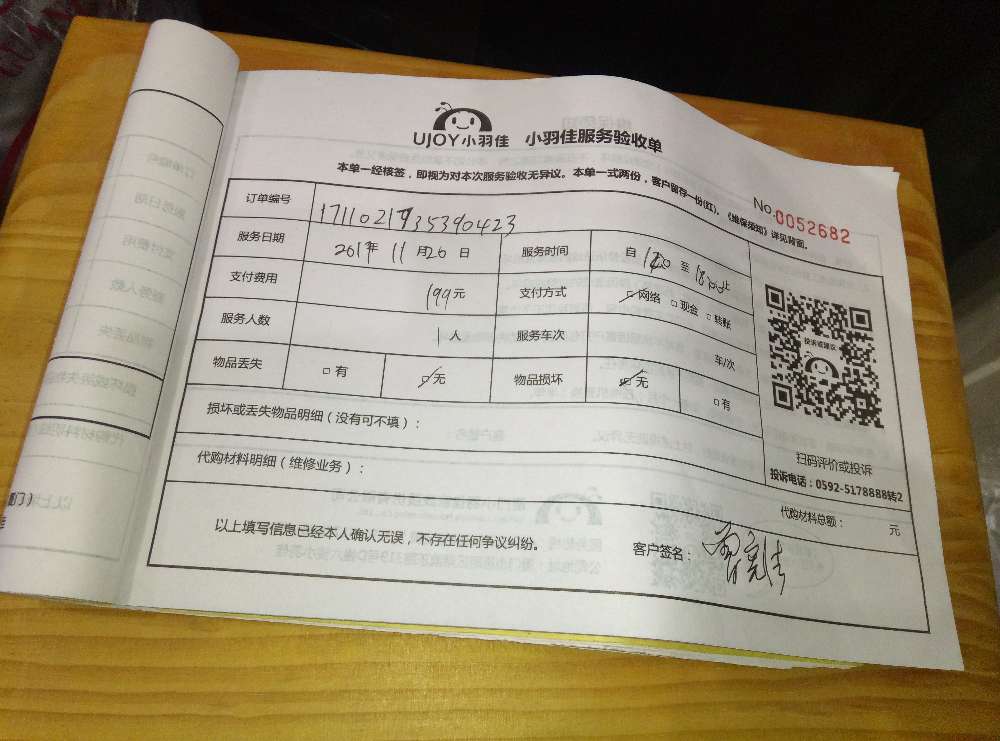 UJOY小羽佳 小羽佳服务验收单
本单一经核签，即视为对本次服务验收无异议。本单一式两份，客户留存一份(红)。《维保须知》详见背面。
No.0052682
订单编号 1711021935390423
服务日期 2017年 11月26日 服务时间 自 至
支付费用 199元 支付方式 □网络 □现金 □转账
服务人数 1人 服务车次 车/次
物品丢失 □有 □无 物品损坏 □无 □有
投诉或建议
损坏或丢失物品明细（没有可不填）：
扫码评价或投诉
投诉电话：0592-5178888转2
代购材料明细（维修业务）：
代购材料总额： 元
以上填写信息已经本人确认无误，不存在任何争议纠纷。
客户签名：